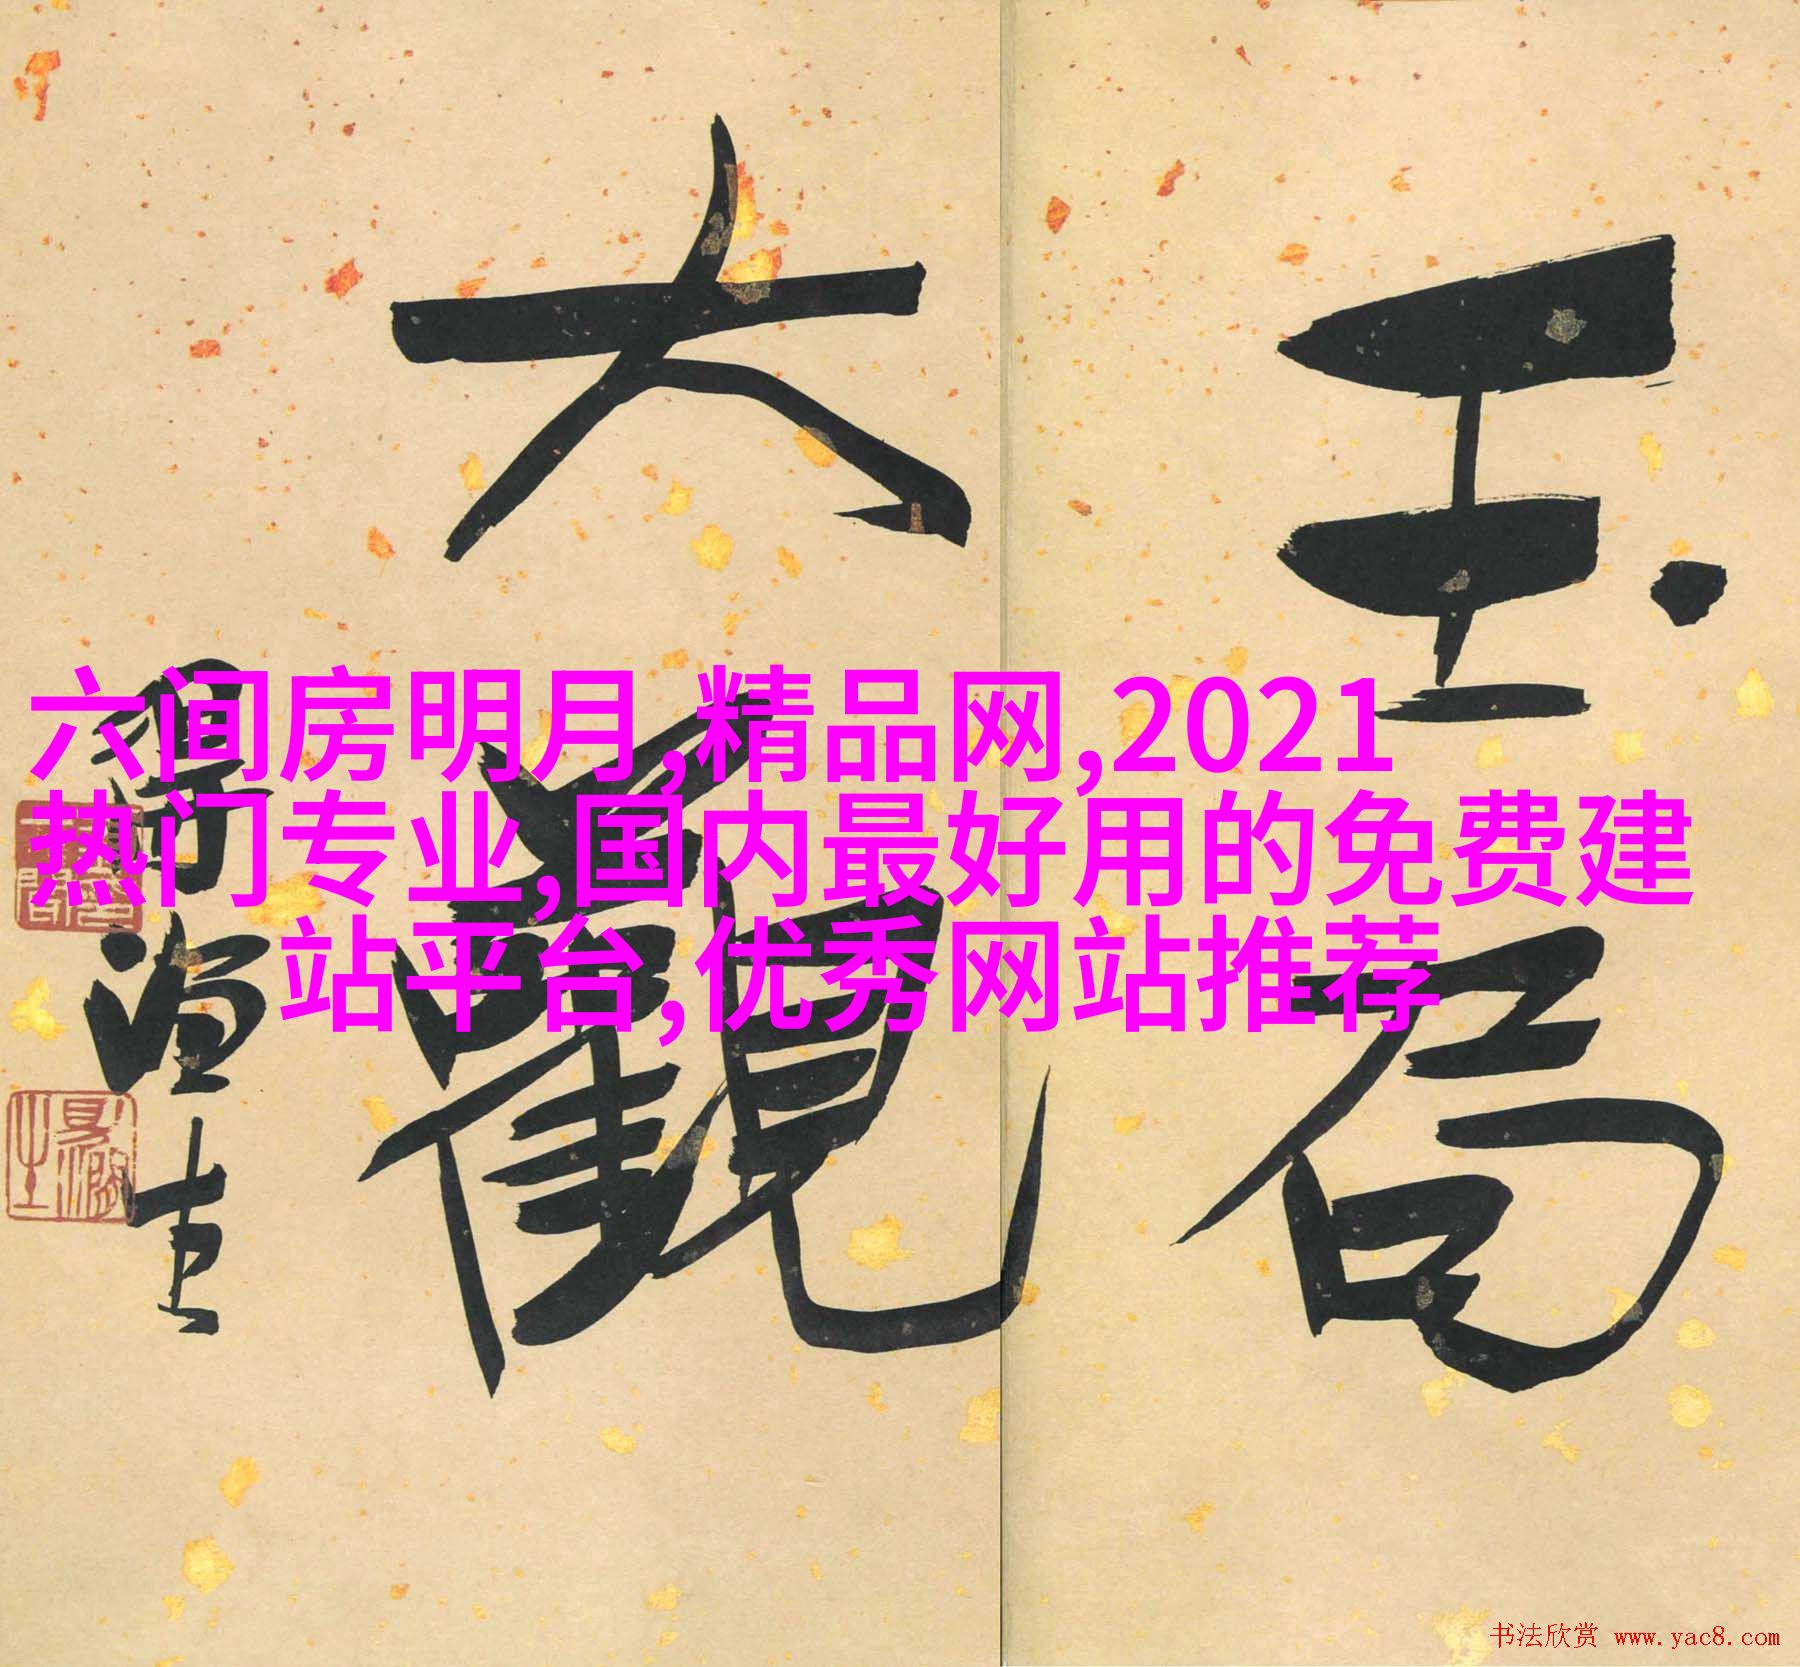 玉局
大觀
六间房明月,精品网,2021
热门专业,国内最好用的免费建
站平台,优秀网站推荐
书法欣赏 www.yac8.com